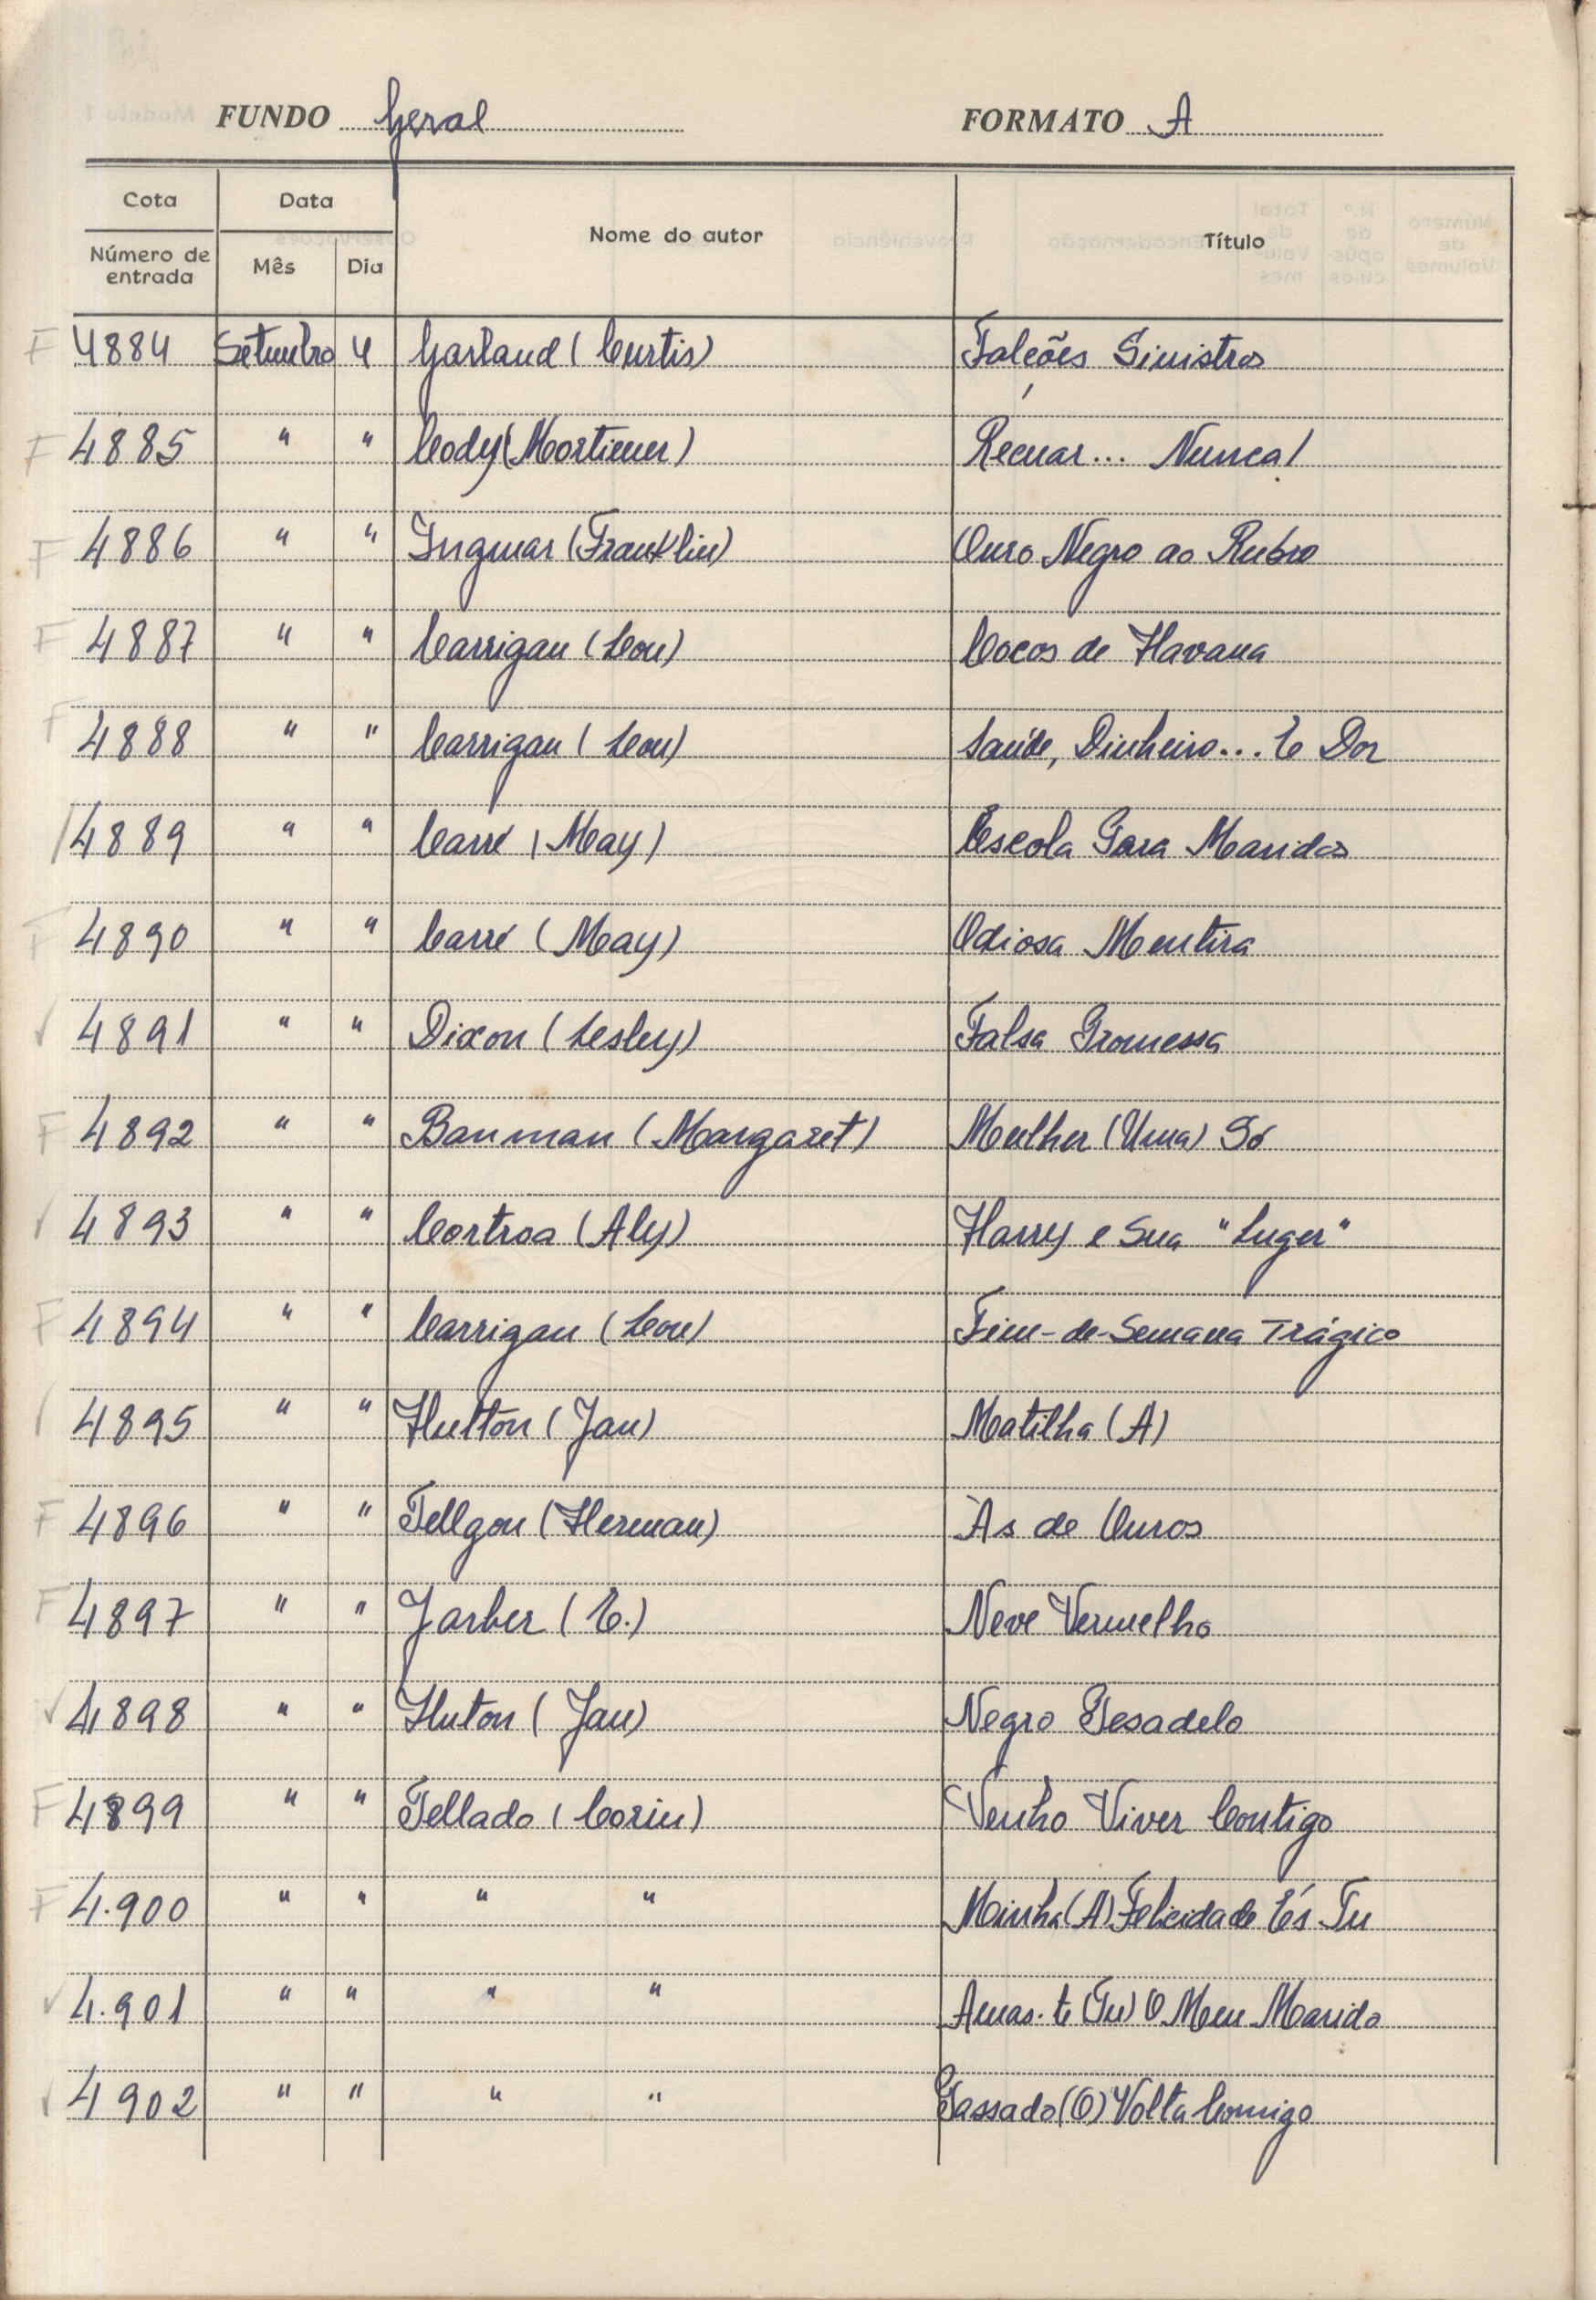 FUNDO Geral FORMATO A
Cota Data Nome do autor Título
Número de entrada Mês Dia
F 4884 Setembro 4 Garland (Curtis) Falcões Sinistros
F 4885 " " Cody (Mortimer) Recuar... Nunca!
F 4886 " " Ingmar (Franklin) Ouro Negro ao Rubro
F 4887 " " Carrigan (Lou) Cocos de Havana
F 4888 " " Carrigan (Lou) Saúde, Dinheiro... E Dor
/ 4889 " " Carré (May) Escola Para Maridos
F 4890 " " Carré (May) Odiosa Mentira
✓ 4891 " " Dixon (Lesley) Falsa Promessa
F 4892 " " Banman (Margaret) Mulher (Uma) Só
✓ 4893 " " Cortroa (Aly) Harry e Sua "Luger"
F 4894 " " Carrigan (Lou) Fim-de-Semana Trágico
/ 4895 " " Hutton (Jan) Matilha (A)
F 4896 " " Tellgon (Herman) Às de Ouros
F 4897 " " Jarber (E.) Neve Vermelho
✓ 4898 " " Huton (Jan) Negro Pesadelo
F 4899 " " Tellado (Corin) Venho Viver Contigo
F 4.900 " " " " Minha (A) Felicidade És Tu
✓ 4.901 " " " " Amas-te (Tu) O Meu Marido
✓ 4902 " " " " Passado (O) Volta Comigo